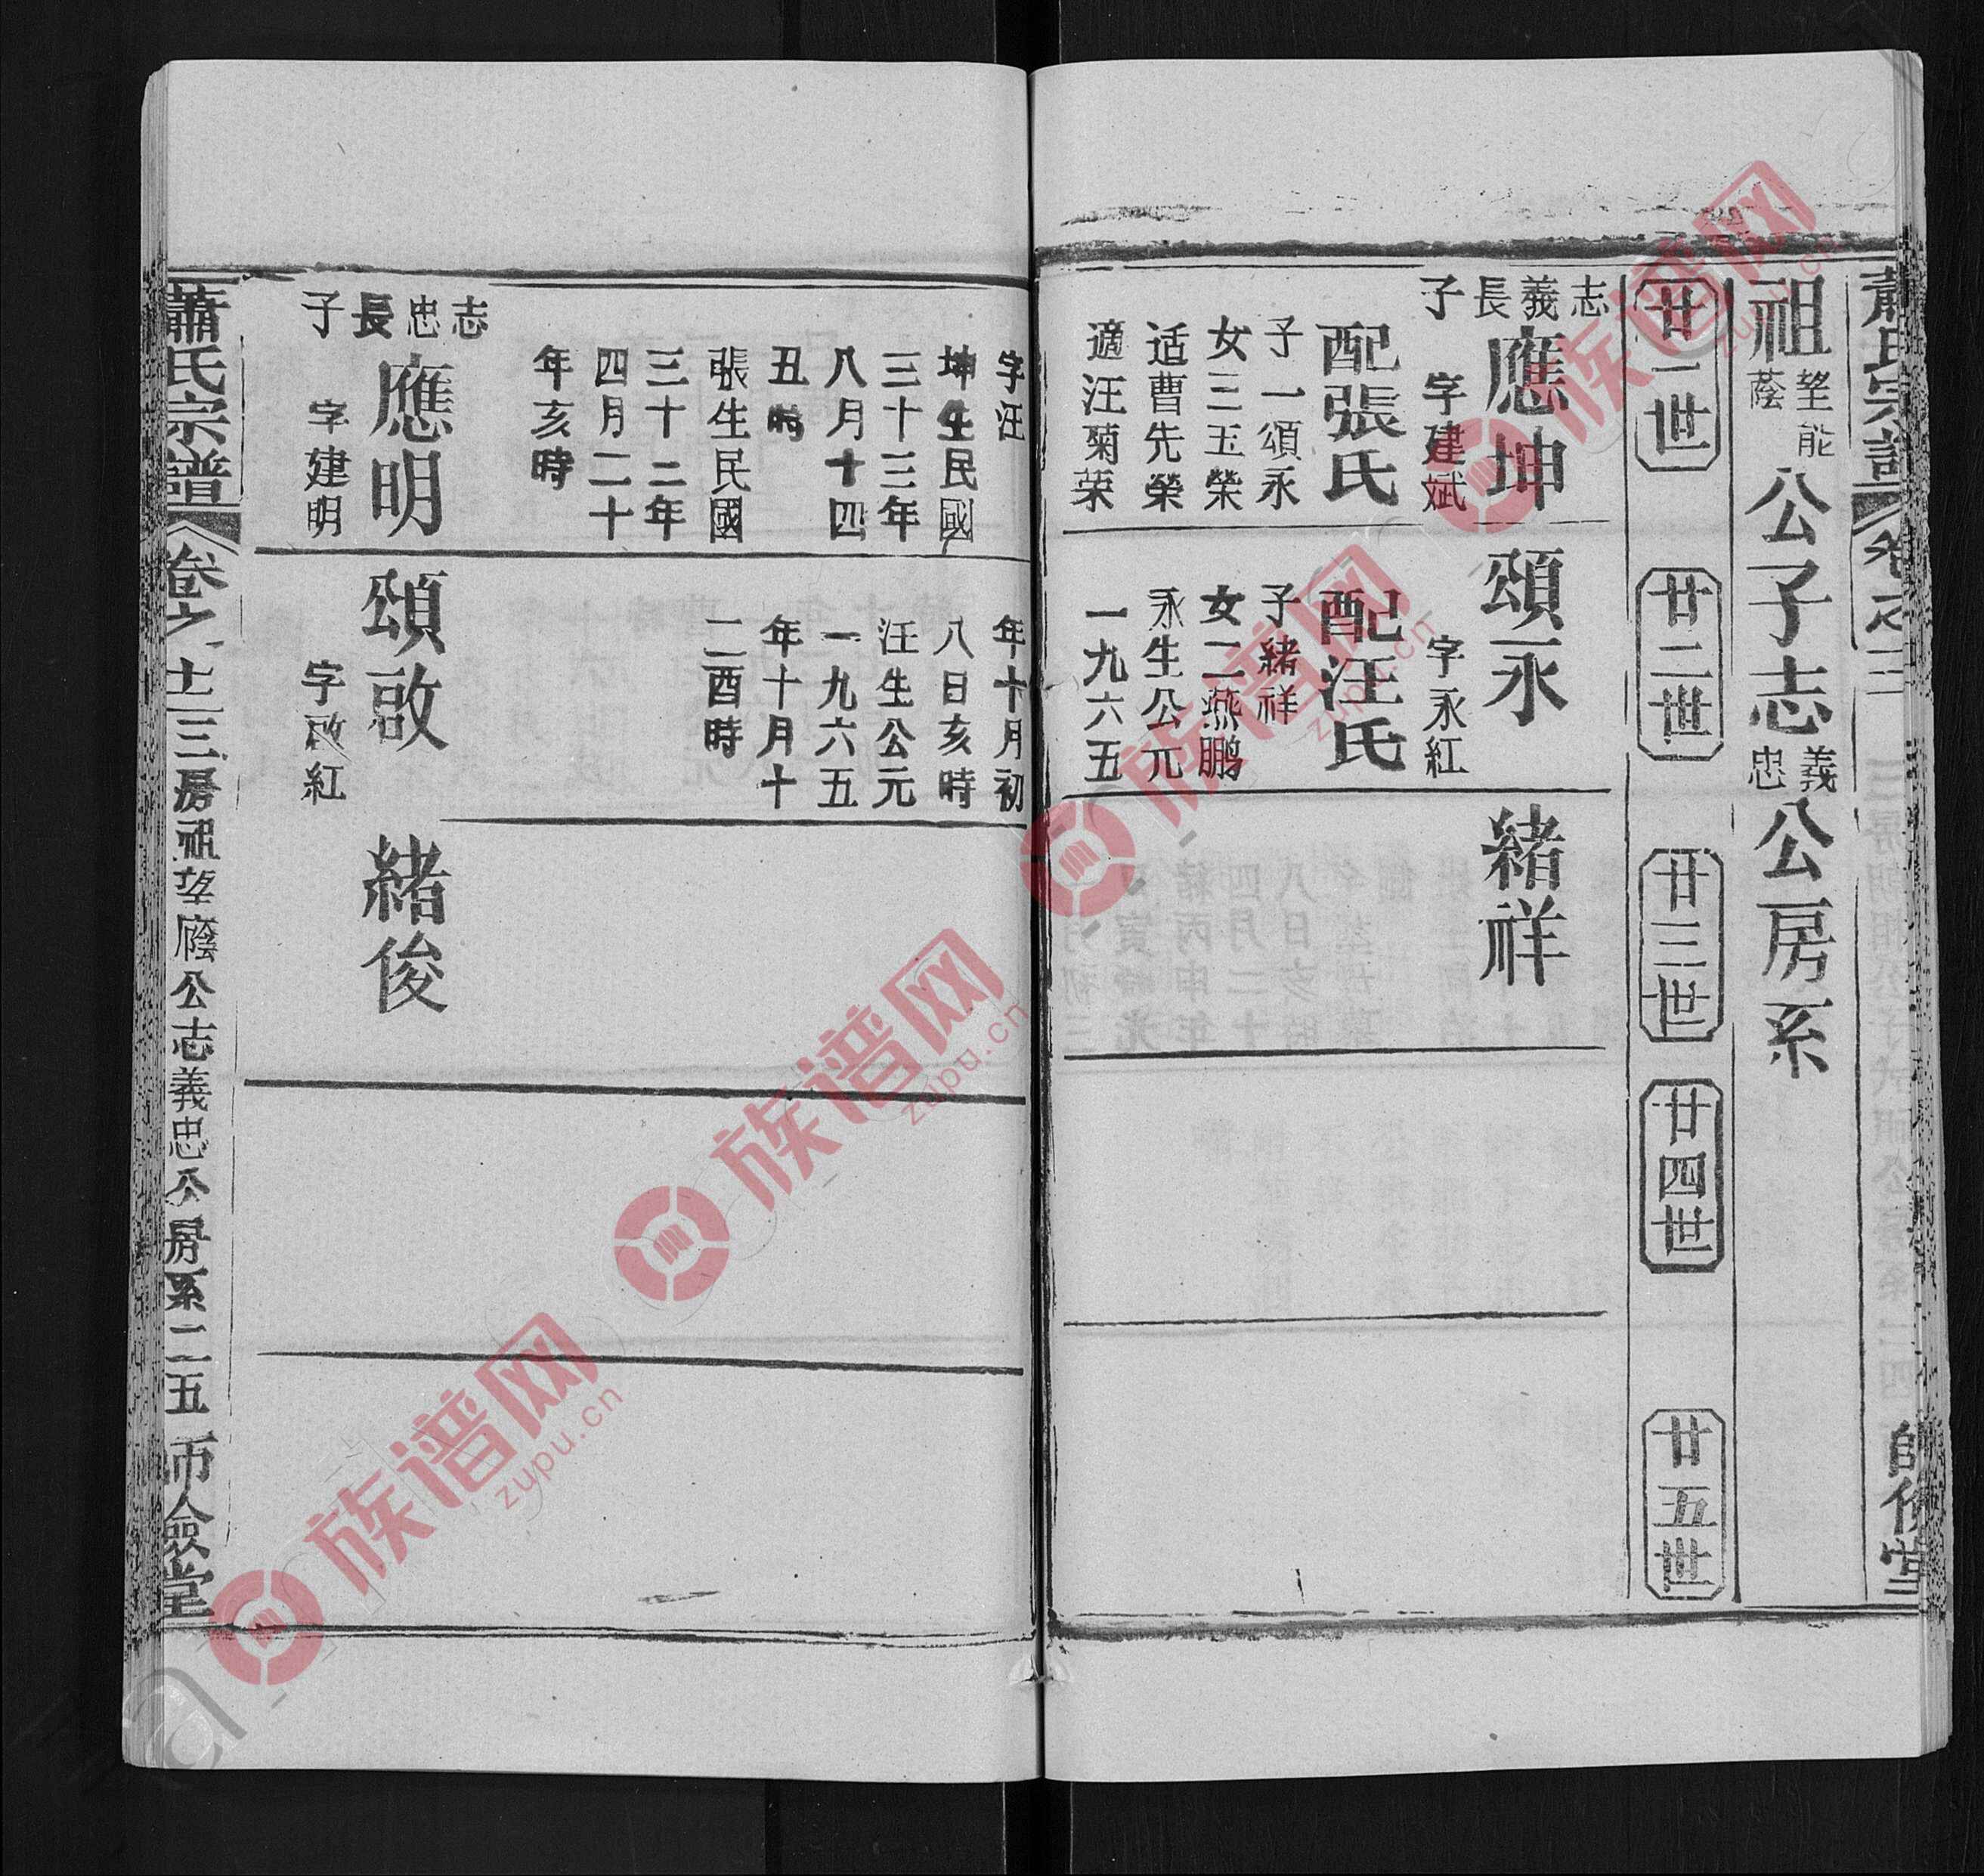 蕭氏宗譜
卷之
祖望能蔭公子志義忠公房系
廿一世
廿二世
廿三世
廿四世
廿五世
志義長子
應坤
字建斌
配張氏
子一頌永
女三玉榮
适曹先榮
適汪菊荣
頌永
字永紅
配汪氏
子緒祥
女二燕鹏
永生公元
一九六五
緒祥
字汪
坤生民國
三十三年
八月十四
丑時
張生民國
三十二年
四月二十
年亥時
年十月初
八日亥時
汪生公元
一九六五
年十月十
二酉時
志忠長子
應明
字建明
頌啟
字啟紅
緒俊
蕭氏宗譜
卷之十一
三房祖望廕公志義忠公房系二五
師儉堂
族谱网
zupu.cn
族谱网
zupu.cn
族谱网
zupu.cn
族谱网
zupu.cn